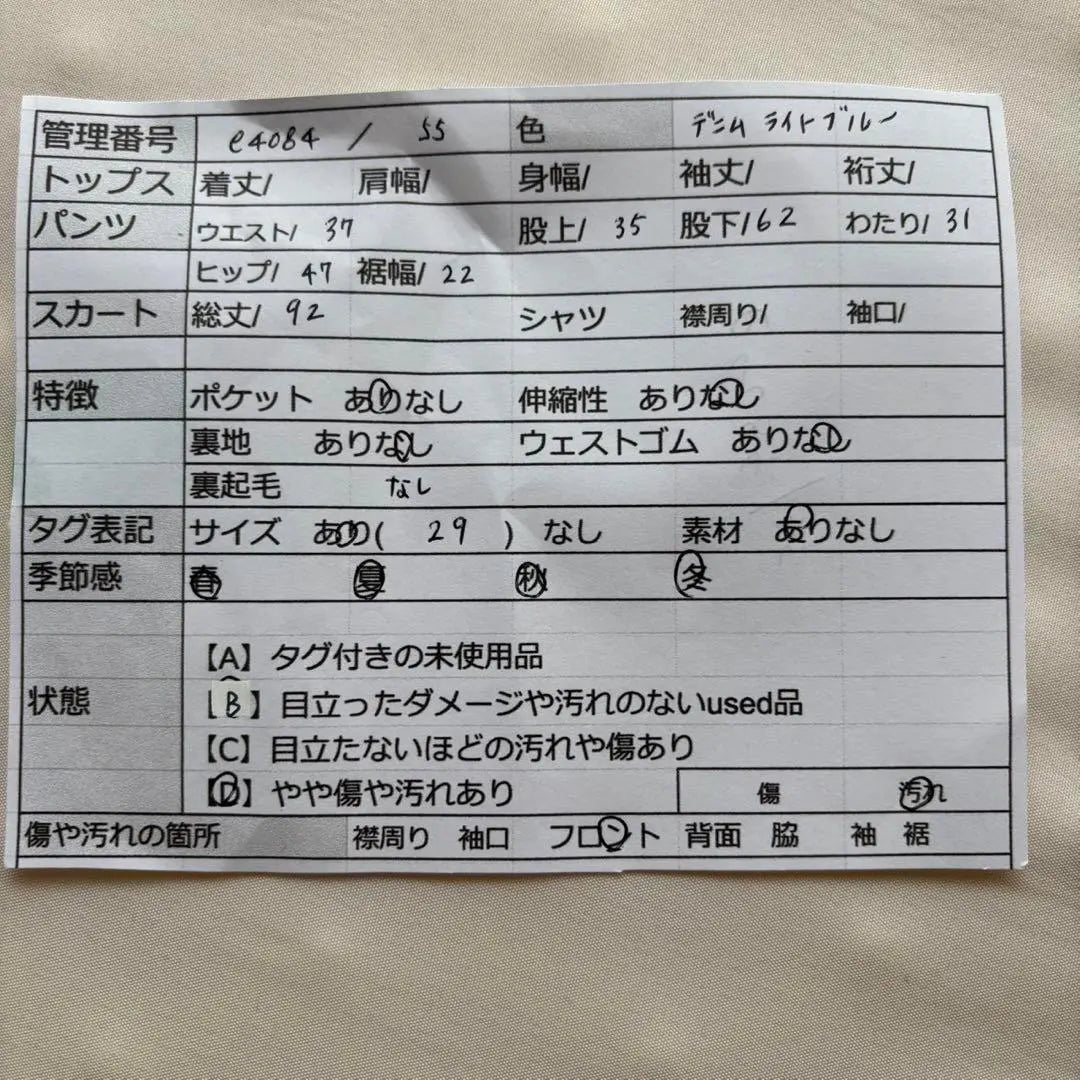 管理番号 e4084 / 55 色 デニム ライトブルー
トップス 着丈/ 肩幅/ 身幅/ 袖丈/ 裄丈/
パンツ ウエスト/ 37 股上/ 35 股下/62 わたり/ 31
ヒップ/ 47 裾幅/ 22
スカート 総丈/ 92 シャツ 襟周り/ 袖口/
特徴 ポケット ありなし 伸縮性 ありなし
裏地 ありなし ウェストゴム ありなし
裏起毛 なし
タグ表記 サイズ あり( 29 ) なし 素材 ありなし
季節感 春 夏 秋 冬
【A】タグ付きの未使用品
状態 【B】目立ったダメージや汚れのないused品
【C】目立たないほどの汚れや傷あり
【D】やや傷や汚れあり 傷 汚れ
傷や汚れの箇所 襟周り 袖口 フロント 背面 脇 袖 裾